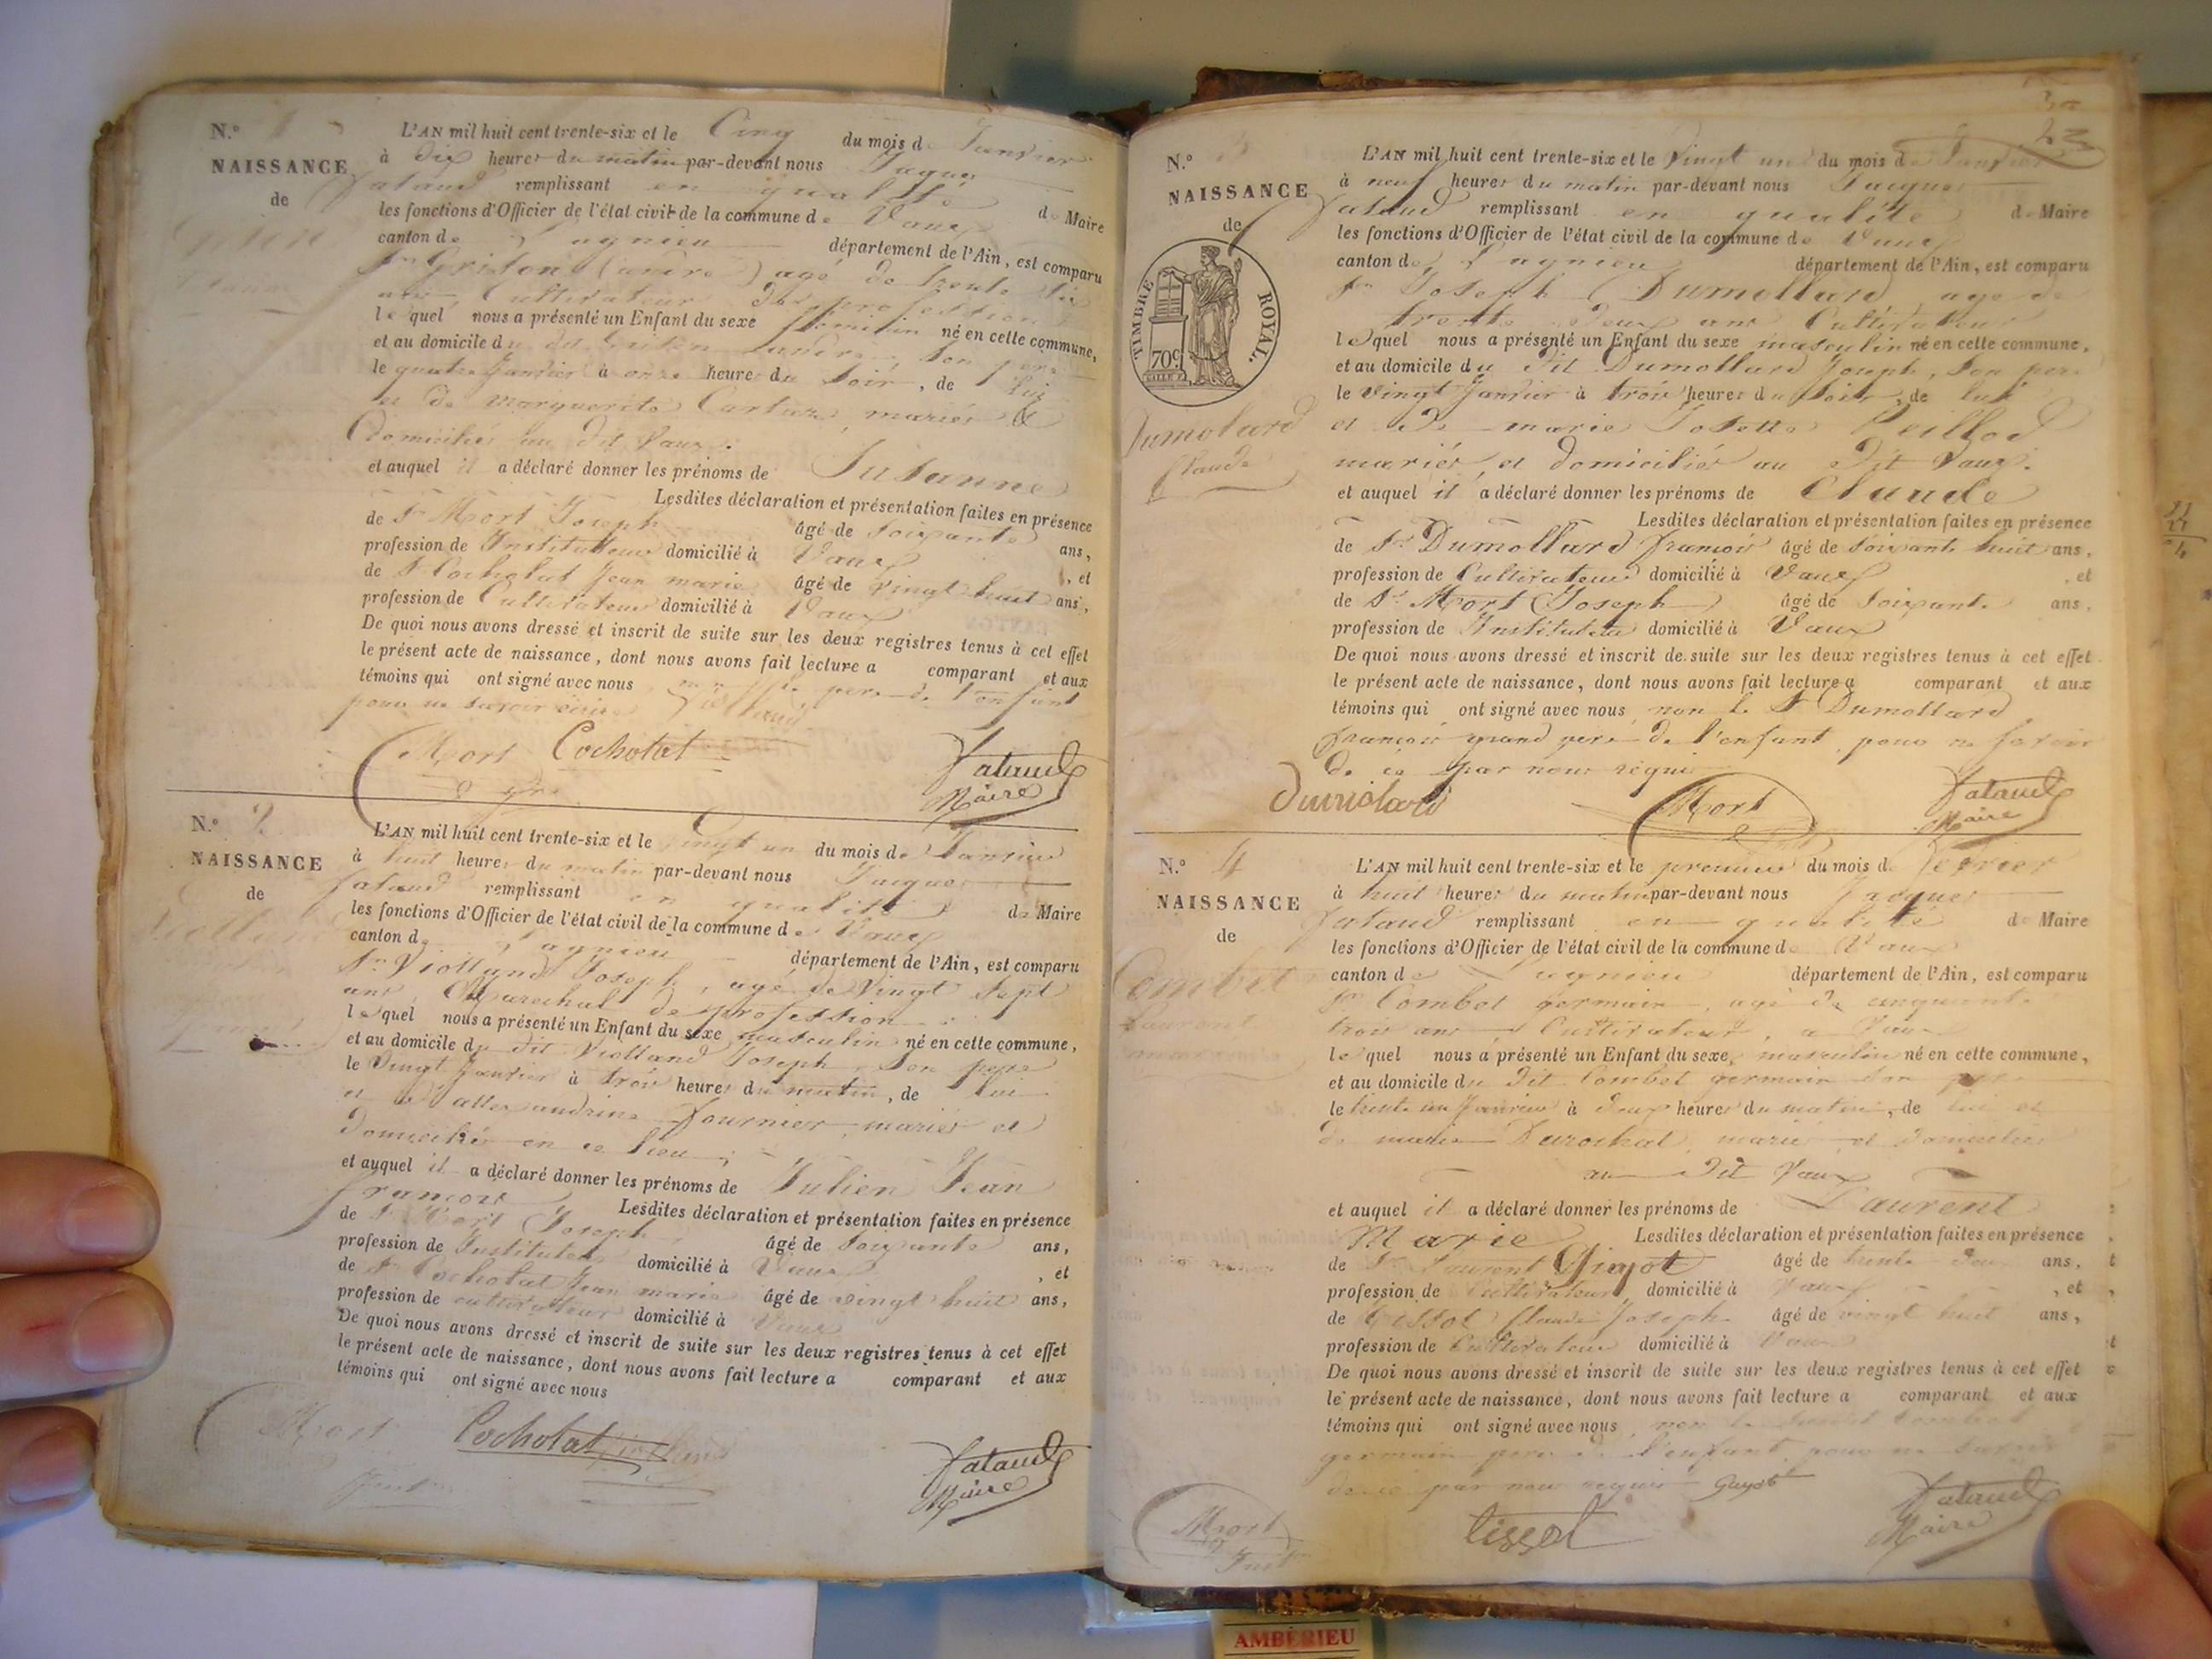 N.º 1
NAISSANCE
de
L'AN mil huit cent trente-six et le Cinq du mois de Janvier
à dix heures du matin par-devant nous Jacques
Jataud remplissant en qualité de Maire
les fonctions d'Officier de l'état civil de la commune de Vaux
canton de Lagnieu département de l'Ain, est comparu
Sr Grison (andré) agé de trente six
ans Cultivateur de profession
lequel nous a présenté un Enfant du sexe féminin né en cette commune,
et au domicile du dit Grison andré, son père
le quatre Janvier à onze heures du Soir, de lui
et de marguerite mariés &
Domiciliés au dit Vaux.
et auquel il a déclaré donner les prénoms de Susanne
Lesdites déclaration et présentation faites en présence
de Sr Mort Joseph âgé de soixante ans,
profession de Instituteur domicilié à Vaux, et
de Sr Cocholat Jean marie âgé de vingt huit ans,
profession de Cultivateur domicilié à Vaux
De quoi nous avons dressé et inscrit de suite sur les deux registres tenus à cet effet
le présent acte de naissance, dont nous avons fait lecture a comparant et aux
témoins qui ont signé avec nous père de l'enfant
pour ne savoir écrire
Mort Cochotat Jataud
Maire
N.º 2
NAISSANCE
de
Violland
L'AN mil huit cent trente-six et le Vingt un du mois de Janvier
à huit heures du matin par-devant nous Jacques
Jataud remplissant en qualité de Maire
les fonctions d'Officier de l'état civil de la commune de Vaux
canton de Lagnieu département de l'Ain, est comparu
Sr Violland Joseph, agé de Vingt Sept
ans, Marechal de profession
lequel nous a présenté un Enfant du sexe masculin né en cette commune,
et au domicile du dit Violland Joseph son père
le Vingt Janvier à trois heures du matin, de lui
et de allexandrine Fournier, mariés et
domiciliés en ce lieu;
et auquel il a déclaré donner les prénoms de Julien Jean
françois Lesdites déclaration et présentation faites en présence
de Sr Mort Joseph âgé de soixante ans,
profession de Instituteur domicilié à Vaux, et
de Sr Cocholat Jean marie âgé de vingt huit ans,
profession de cultivateur domicilié à Vaux
De quoi nous avons dressé et inscrit de suite sur les deux registres tenus à cet effet
le présent acte de naissance, dont nous avons fait lecture a comparant et aux
témoins qui ont signé avec nous
Mort Cochotat Violland Jataud
Inst Maire
23
N.º 3
NAISSANCE
de
TIMBRE ROYAL.
70c
Dumolard
Claude
L'AN mil huit cent trente-six et le Vingt un du mois de Janvier
à neuf heures du matin par-devant nous Jacques
Jataud remplissant en qualité de Maire
les fonctions d'Officier de l'état civil de la commune de Vaux
canton de Lagnieu département de l'Ain, est comparu
Sr Joseph (Dumollard) agé de
trente deux ans Cultivateur
lequel nous a présenté un Enfant du sexe masculin né en cette commune,
et au domicile du dit Dumollard Joseph, son père
le Vingt Janvier à trois heures du Soir, de lui
et de marie Josette Peillod
mariés et domiciliés au dit Vaux.
et auquel il a déclaré donner les prénoms de Claude
Lesdites déclaration et présentation faites en présence
de Sr Dumollard françois âgé de soixante huit ans,
profession de Cultivateur domicilié à Vaux, et
de Sr Mort Joseph âgé de soixante ans,
profession de Instituteur domicilié à Vaux
De quoi nous avons dressé et inscrit de suite sur les deux registres tenus à cet effet
le présent acte de naissance, dont nous avons fait lecture a comparant et aux
témoins qui ont signé avec nous, non le Sr Dumollard
françois grand père de l'enfant, pour ne savoir
de ce par nous requis
Dumolard Mort Jataud
Maire
N.º 4
NAISSANCE
de
Combet
Laurent
L'AN mil huit cent trente-six et le premier du mois de fevrier
à huit heures du matin par-devant nous Jacques
Jataud remplissant en qualité de Maire
les fonctions d'Officier de l'état civil de la commune de Vaux
canton de Lagnieu département de l'Ain, est comparu
Sr Combet germain, agé de cinquante
trois ans Cultivateur, a Vaux
lequel nous a présenté un Enfant du sexe masculin né en cette commune,
et au domicile du dit Combet germain son père
le trente un Janvier à deux heures du matin, de lui et
de marie Durochat, mariés et domiciliés
au dit Vaux
et auquel il a déclaré donner les prénoms de Laurent
Marie Lesdites déclaration et présentation faites en présence
de Sr Laurent Guyot âgé de trente deux ans,
profession de Cultivateur domicilié à Vaux, et
de Tissot Claude Joseph âgé de vingt huit ans,
profession de Cultivateur domicilié à Vaux
De quoi nous avons dressé et inscrit de suite sur les deux registres tenus à cet effet
le présent acte de naissance, dont nous avons fait lecture a comparant et aux
témoins qui ont signé avec nous non le Combet
germain père de l'enfant, pour ne savoir
de ce par nous requis Guyot
Mort tissot Jataud
Inst Maire
AMBÉRIEU